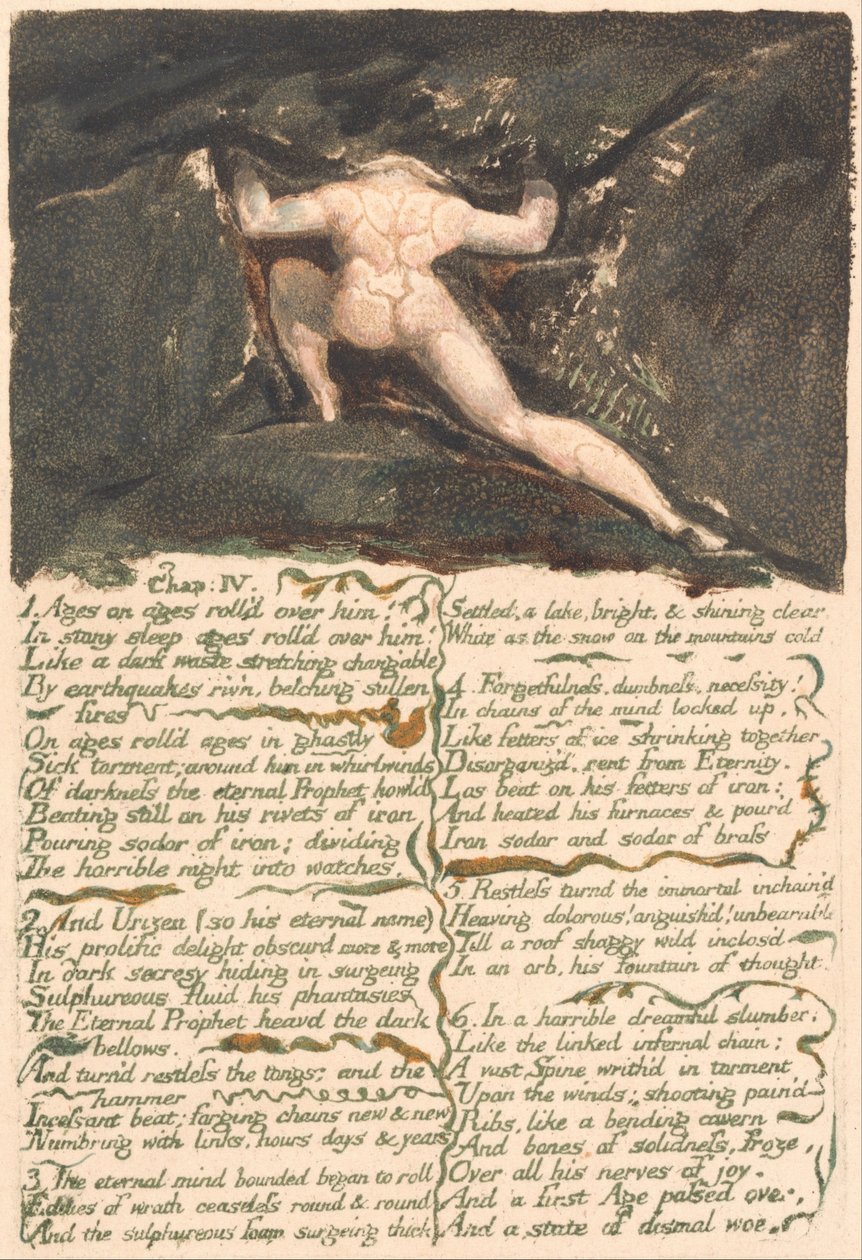 Chap: IV.
1. Ages on ages roll'd over him!
In stony sleep ages roll'd over him!
Like a dark waste stretching chang'able
By earthquakes riv'n, belching sullen
fires
On ages roll'd ages in ghastly
Sick torment; around him in whirlwinds
Of darkness the eternal Prophet howl'd
Beating still on his rivets of iron
Pouring sodor of iron; dividing
The horrible night into watches.
2. And Urizen (so his eternal name)
His prolific delight obscurd more & more
In dark secresy hiding in surgeing
Sulphureous fluid his phantasies.
The Eternal Prophet heavd the dark
bellows.
And turn'd restless the tongs; and the
hammer
Incessant beat; forging chains new & new
Numb'ring with links, hours days & years
3. The eternal mind bounded began to roll
Eddies of wrath ceaseless round & round
And the sulphureous foam surgeing thick
Settled, a lake, bright, & shining clear
White as the snow on the mountains cold
4. Forgetfulness, dumbness, necessity!
In chains of the mind locked up,
Like fetters of ice shrinking together
Disorganiz'd, rent from Eternity.
Los beat on his fetters of iron;
And heated his furnaces & pour'd
Iron sodor and sodor of brass
5. Restless turnd the immortal inchain'd
Heaving dolorous! anguish'd! unbearable
Till a roof shaggy wild inclos'd
In an orb, his fountain of thought.
6. In a horrible dreamful slumber;
Like the linked infernal chain;
A vast Spine writh'd in torment
Upon the winds; shooting pain'd
Ribs, like a bending cavern
And bones of solidness, froze
Over all his nerves of joy.
And a first Age passed over,
And a state of dismal woe.